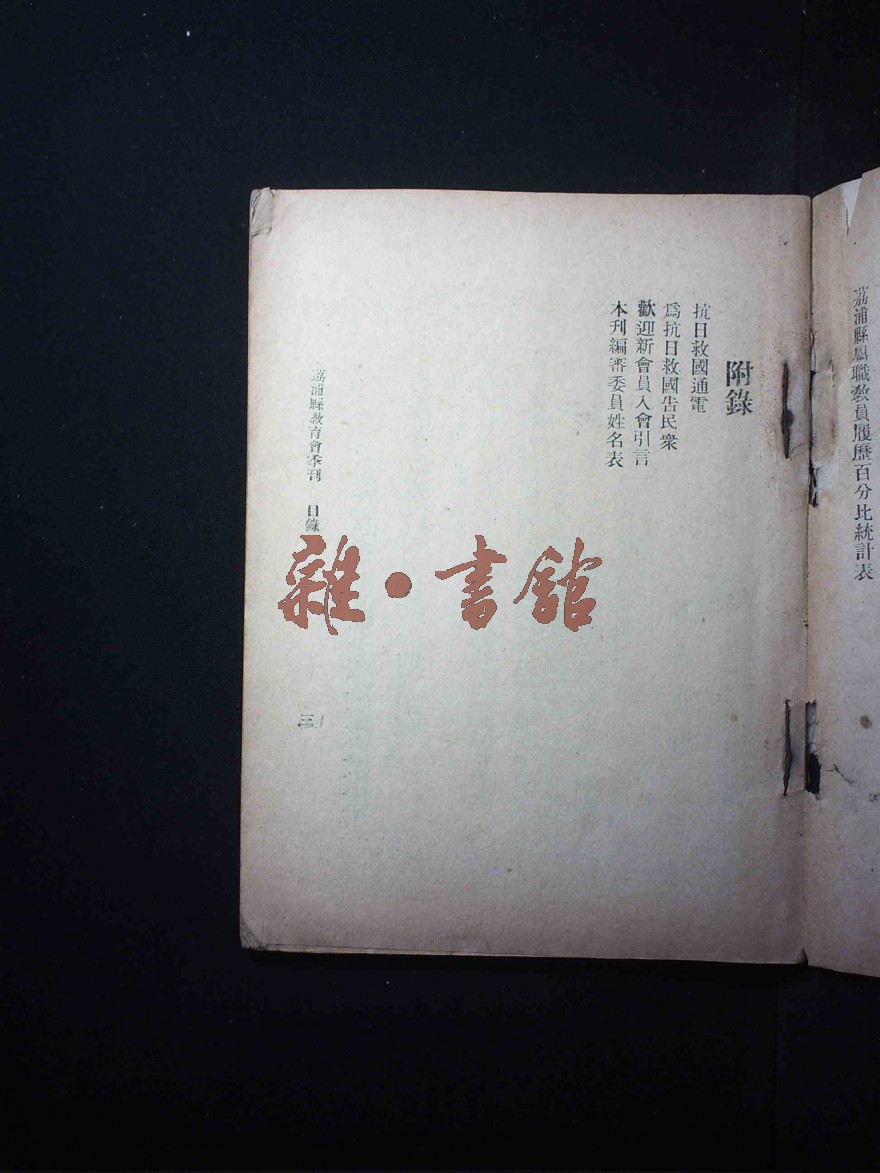 荔浦縣屬職教員履歷百分比統計表
附錄
抗日救國通電
爲抗日救國告民衆
歡迎新會員入會引言
本刊編審委員姓名表
荔浦縣教育會季刊 目錄
三
雜·書館